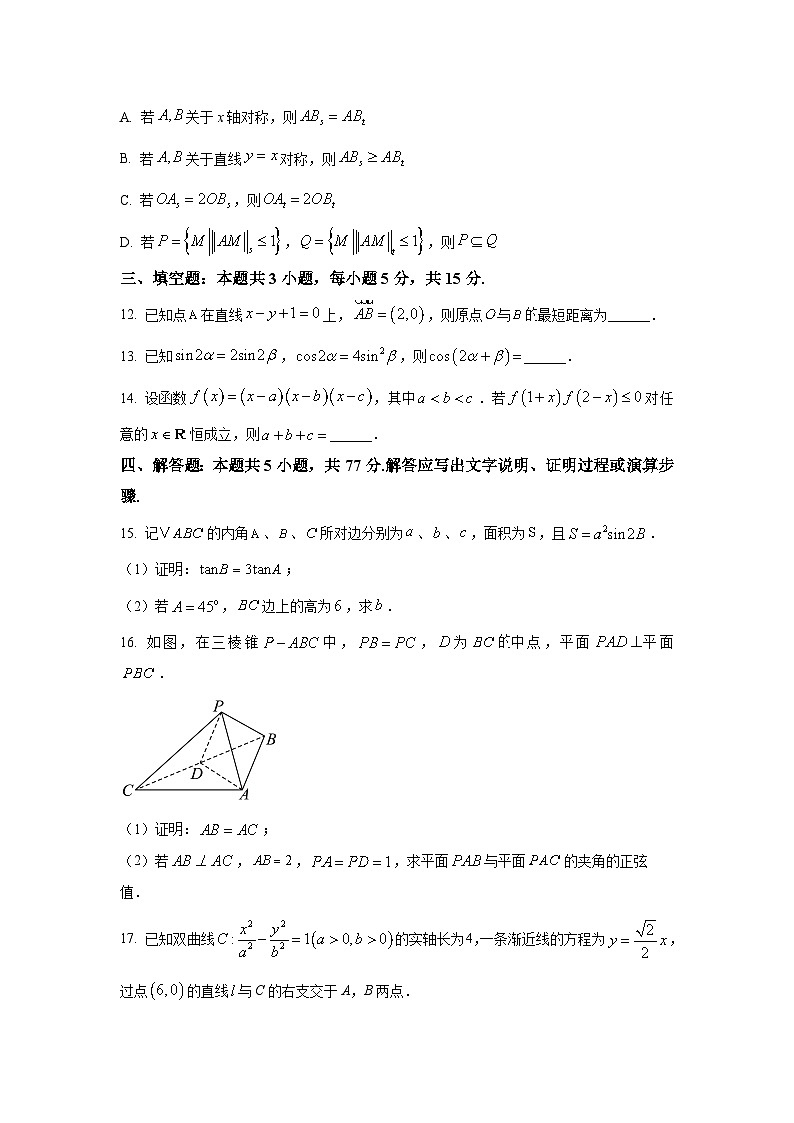 A. 若 A, B 关于 x 轴对称，则 ABₛ = ABₜ
B. 若 A, B 关于直线 y = x 对称，则 ABₛ ≥ ABₜ
C. 若 OAₛ = 2OBₛ，则 OAₜ = 2OBₜ
D. 若 P = {M | ‖AM‖ₛ ≤ 1}，Q = {M | ‖AM‖ₜ ≤ 1}，则 P ⊆ Q
三、填空题：本题共 3 小题，每小题 5 分，共 15 分.
12. 已知点 A 在直线 x − y + 1 = 0 上，AB = (2,0)，则原点 O 与 B 的最短距离为______.
13. 已知 sin2α = 2sin2β，cos2α = 4sin²β，则 cos(2α + β) = ______.
14. 设函数 f(x) = (x − a)(x − b)(x − c)，其中 a < b < c．若 f(1+x) f(2−x) ≤ 0 对任
意的 x ∈ R 恒成立，则 a + b + c = ______.
四、解答题：本题共 5 小题，共 77 分.解答应写出文字说明、证明过程或演算步
骤.
15. 记 V ABC 的内角 A 、B 、C 所对边分别为 a 、b 、c，面积为 S，且 S = a²sin2B．
（1）证明：tanB = 3tanA；
（2）若 A = 45°，BC 边上的高为 6，求 b．
16. 如图，在三棱锥 P − ABC 中，PB = PC，D 为 BC 的中点，平面 PAD ⊥平面
PBC．
P
B
D
C
A
（1）证明：AB = AC；
（2）若 AB ⊥ AC，AB = 2，PA = PD = 1，求平面 PAB 与平面 PAC 的夹角的正弦
值．
17. 已知双曲线 C : x²/a² − y²/b² = 1(a > 0, b > 0) 的实轴长为 4，一条渐近线的方程为 y = √2/2 x，
过点 (6,0) 的直线 l 与 C 的右支交于 A，B 两点．